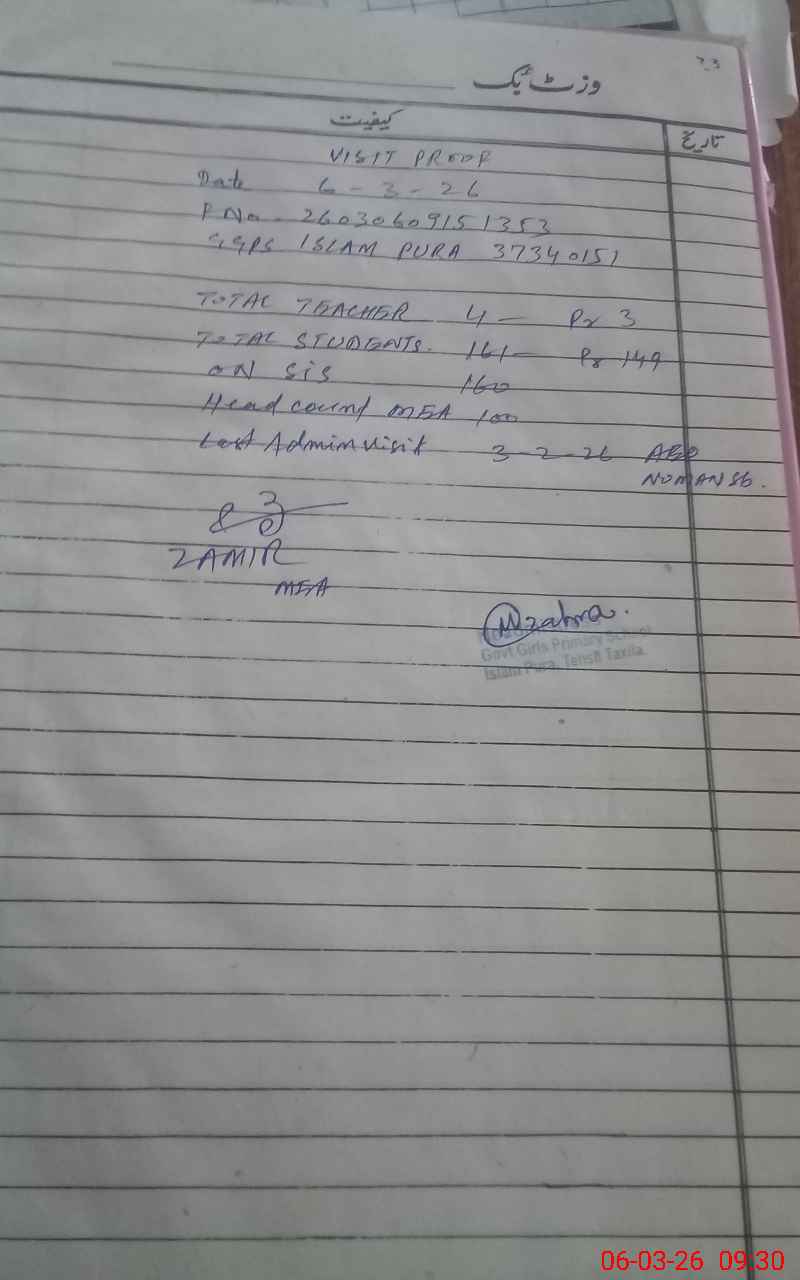 23
وزٹ بک
کیفیت
تاریخ
VISIT PROOF
Date 6-3-26
P No. 26030609151353
GGPS ISLAM PURA 37340151
TOTAL TEACHER 4 — Pr 3
TOTAL STUDENTS. 161 — Pr 149
ON SIS 160
Head count MEA 100
Last Admin visit 3-2-26 AEO
NOMAN Sb.
ZAMIR
MEA
Govt Girls Primary School
Islam Pura, Tensil Taxila.
06-03-26 09:30